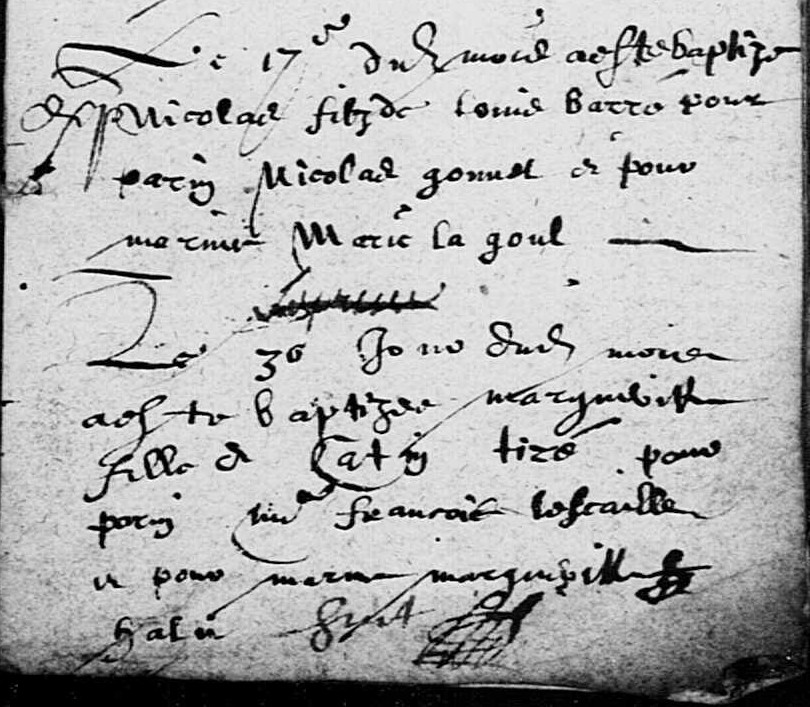 Le 17e dud mois a este baptize
Nicolas filz de Louis barré pour
parin Nicolas gonnet et pour
marine Marie la goul
Le 30 Jour dud mois
a este baptizee marguerite
fille de Catin tiré pour
parin me francois lescaille
et pour marine marguerite